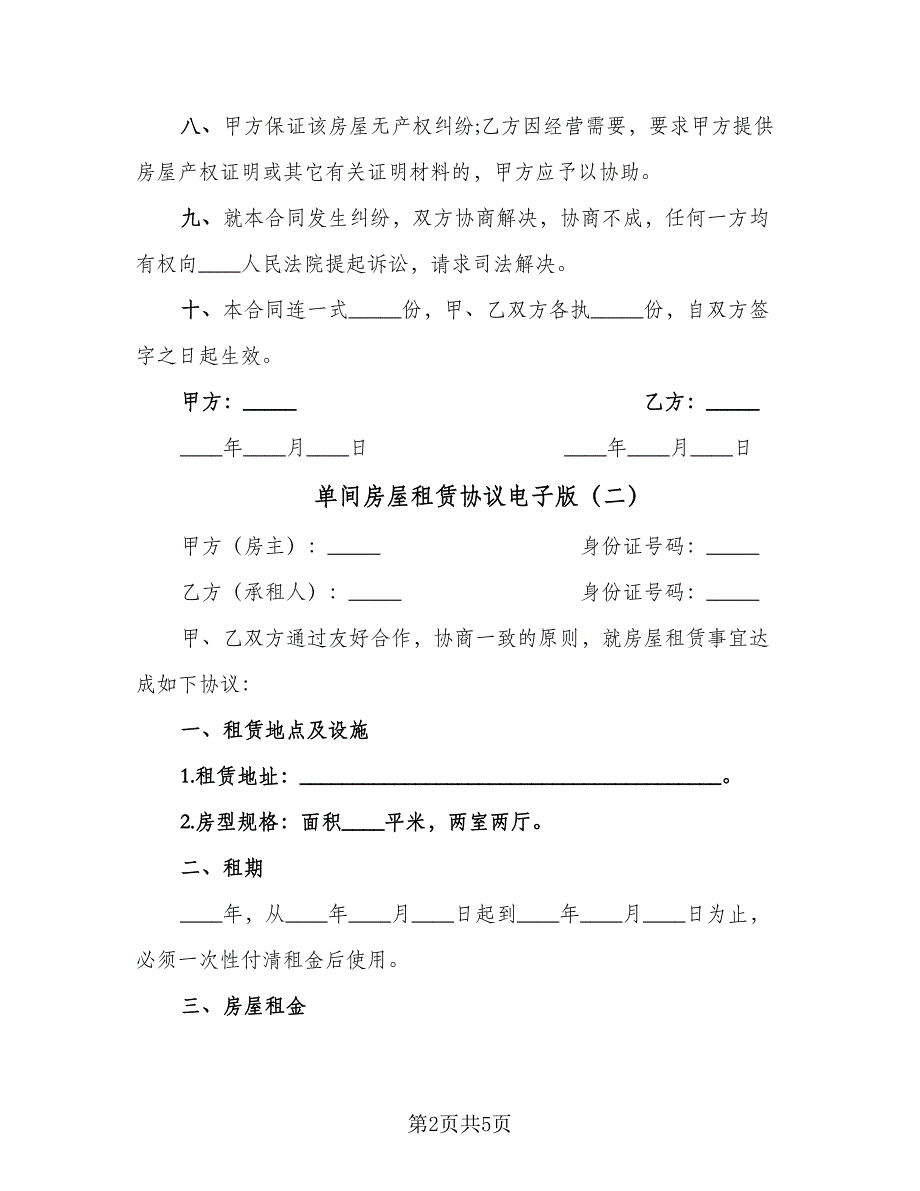 八、甲方保证该房屋无产权纠纷;乙方因经营需要，要求甲方提供
房屋产权证明或其它有关证明材料的，甲方应予以协助。
九、就本合同发生纠纷，双方协商解决，协商不成，任何一方均
有权向____人民法院提起诉讼，请求司法解决。
十、本合同连一式_____份，甲、乙双方各执_____份，自双方签
字之日起生效。
甲方：_____ 乙方：_____
____年____月____日 ____年____月____日
单间房屋租赁协议电子版（二）
甲方（房主）：_____ 身份证号码：_____
乙方（承租人）：_____ 身份证号码：_____
甲、乙双方通过友好合作，协商一致的原则，就房屋租赁事宜达
成如下协议：
一、租赁地点及设施
1.租赁地址：________________________________________。
2.房型规格：面积____平米，两室两厅。
二、租期
____年，从____年____月____日起到____年____月____日为止，
必须一次性付清租金后使用。
三、房屋租金
第2页共5页